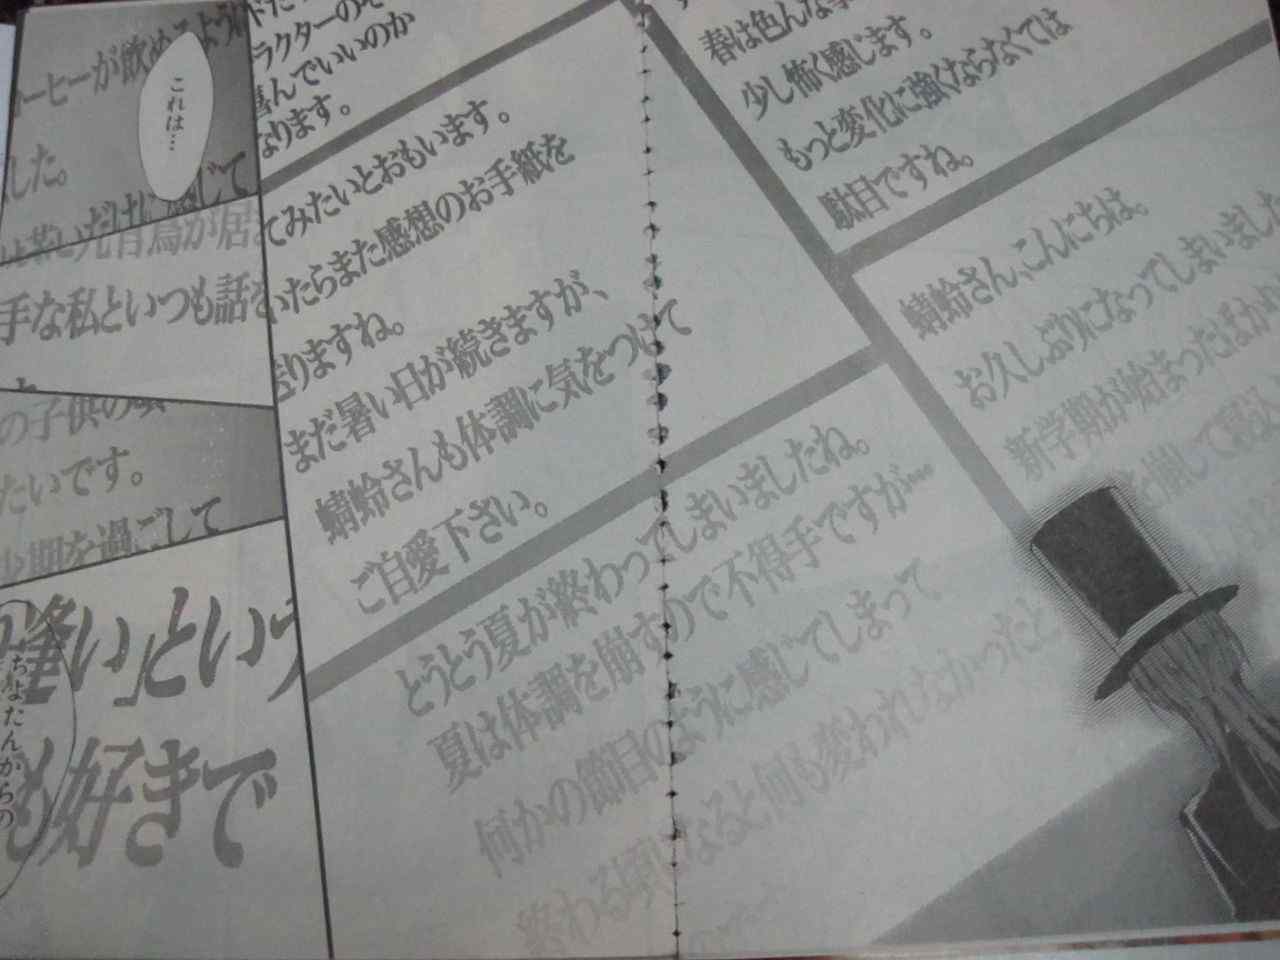 春は色んな
少し怖く感じます。
もっと変化に強くならなくては
駄目ですね。
蜻蛉さん、こんにちは。
お久しぶりになってしまいました
新学期が始まったばか
を崩して寝込
ラクターの
喜んでいいのか
なります。
てみたいとおもいます。
いたらまた感想のお手紙を
送りますね。
まだ暑い日が続きますが、
蜻蛉さんも体調に気をつけて
ご自愛下さい。
とうとう夏が終わってしまいましたね。
夏は体調を崩すので不得手ですが…
何かの節目のように感じてしまって
終わる頃になると何も変われなかったと
ーヒーが飲めるよう
これは…
した。
じて
が居
手な私といつも話を
の子供の
たいです。
少期を過ごして
逢い」という
も好きで
ちよたんからの